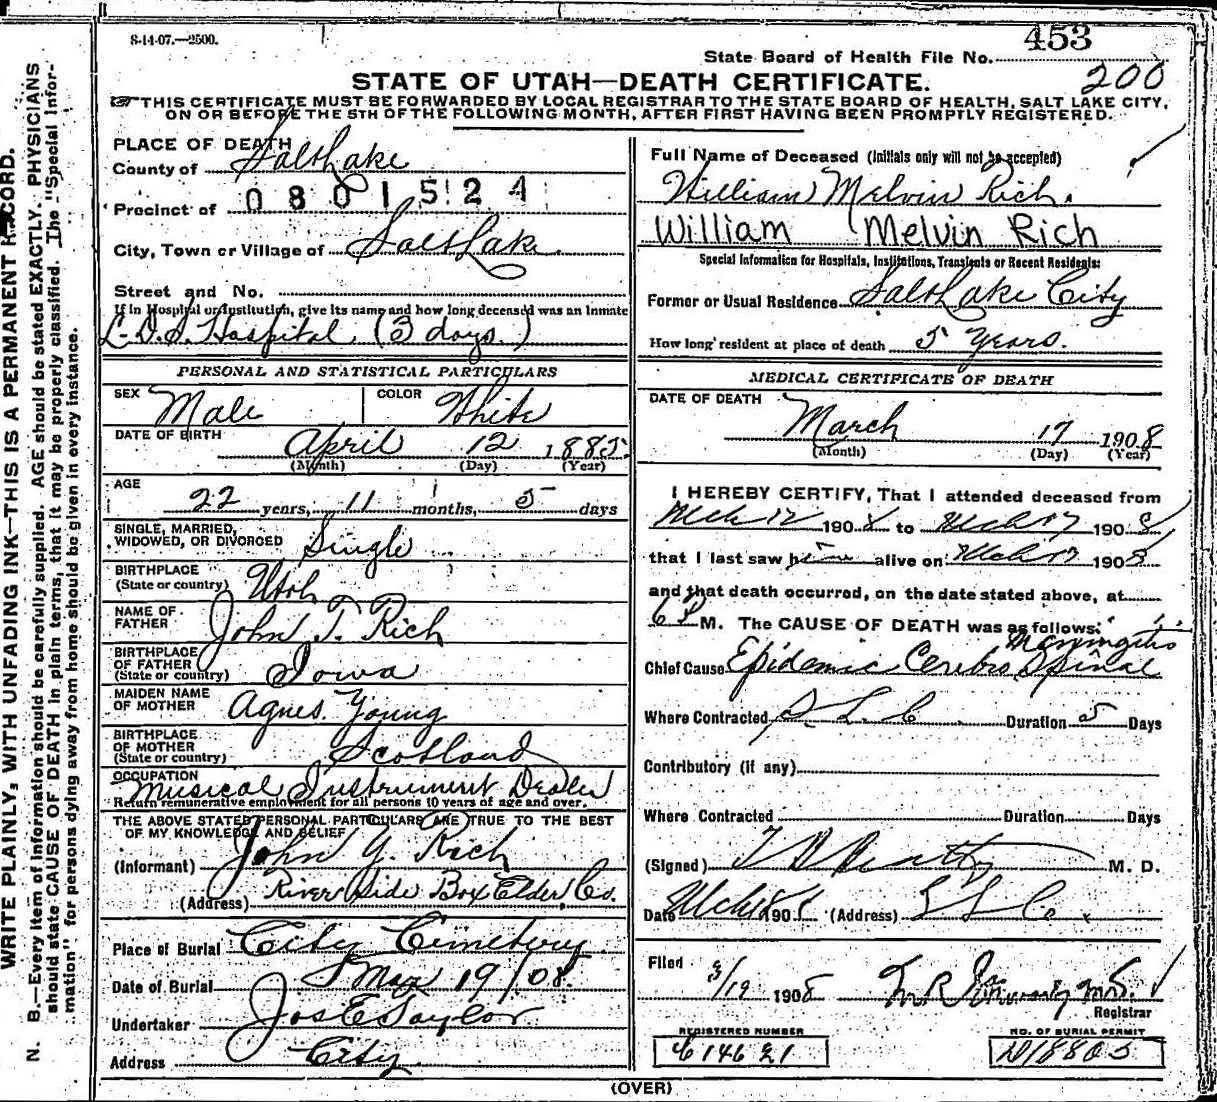 8-14-07.—2500.
453
State Board of Health File No.
200
STATE OF UTAH—DEATH CERTIFICATE.
THIS CERTIFICATE MUST BE FORWARDED BY LOCAL REGISTRAR TO THE STATE BOARD OF HEALTH, SALT LAKE CITY,
ON OR BEFORE THE 5TH OF THE FOLLOWING MONTH, AFTER FIRST HAVING BEEN PROMPTLY REGISTERED.
WRITE PLAINLY, WITH UNFADING INK—THIS IS A PERMANENT RECORD.
N. B.—Every item of information should be carefully supplied. AGE should be stated EXACTLY. PHYSICIANS
should state CAUSE OF DEATH in plain terms, that it may be properly classified. The "Special Infor-
mation" for persons dying away from home should be given in every instance.
PLACE OF DEATH
County of Salt Lake
0801524
Precinct of
City, Town or Village of Salt Lake
Street and No.
If in Hospital or Institution, give its name and how long deceased was an Inmate
L.D.S. Hospital. (3 days.)
PERSONAL AND STATISTICAL PARTICULARS
SEX Male COLOR White
DATE OF BIRTH April 12 1885
(Month) (Day) (Year)
AGE
22 years, 11 months, 5 days
SINGLE, MARRIED,
WIDOWED, OR DIVORCED Single
BIRTHPLACE
(State or country) Utah
NAME OF
FATHER John T. Rich
BIRTHPLACE
OF FATHER
(State or country) Iowa
MAIDEN NAME
OF MOTHER Agnes Young
BIRTHPLACE
OF MOTHER
(State or country) Scotland
OCCUPATION
Musical Instrument Dealer
Return remunerative employment for all persons 10 years of age and over.
THE ABOVE STATED PERSONAL PARTICULARS ARE TRUE TO THE BEST
OF MY KNOWLEDGE AND BELIEF
(Informant) John Y. Rich
(Address) River Side Box Elder, Co.
Place of Burial City Cemetery
Date of Burial Mar 19/08.
Undertaker Jos E Taylor
Address City
Full Name of Deceased (Initials only will not be accepted)
William Melvin Rich.
William Melvin Rich
Special Information for Hospitals, Institutions, Transients or Recent Residents:
Former or Usual Residence Salt Lake City
How long resident at place of death 5 Years.
MEDICAL CERTIFICATE OF DEATH
DATE OF DEATH
March 17 1908
(Month) (Day) (Year)
I HEREBY CERTIFY, That I attended deceased from
Mch 12 1908 to Mch 17 1908
that I last saw him alive on Mch 17 1908
and that death occurred, on the date stated above, at
6 P M. The CAUSE OF DEATH was as follows:
Chief Cause Epidemic Cerebro Spinal Meningitis
Where Contracted S. L. C. Duration 5 Days
Contributory (if any)
Where Contracted Duration Days
(Signed) Beatty M. D.
Date Mch 18 1908 (Address) S L Co.
Filed 3/19 1908 M.D.
Registrar
REGISTERED NUMBER
C14621
NO. OF BURIAL PERMIT
D18805
(OVER)